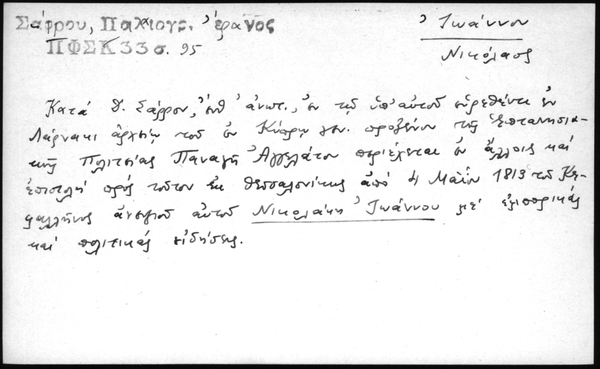 Σάθρου, Παλαιογρ. Ἔρανος
ΠΦΣΚ 33 σ. 95
Ἰωάννου
Νικόλαος
Κατὰ Δ. Σάρρον, ἔνθ' ἀνωτ., ἐν τῷ ὑπ' αὐτοῦ εὑρεθέντι ἐν
Λάρνακι ἀρχείῳ τοῦ ἐν Κύπρῳ γεν. προξένου τῆς Ἑπτανησια-
κῆς Πολιτείας Παναγῆ Ἀγγελάτου περιέχεται ἐν ἄλλοις καὶ
ἐπιστολὴ πρὸς τοῦτον ἐκ Θεσσαλονίκης ἀπὸ 4 Μαΐου 1813 τοῦ Κε-
φαλλῆνος ἀνεψιοῦ αὐτοῦ Νικολάκη Ἰωάννου μὲ ἐμπορικὰς
καὶ πολιτικὰς εἰδήσεις.